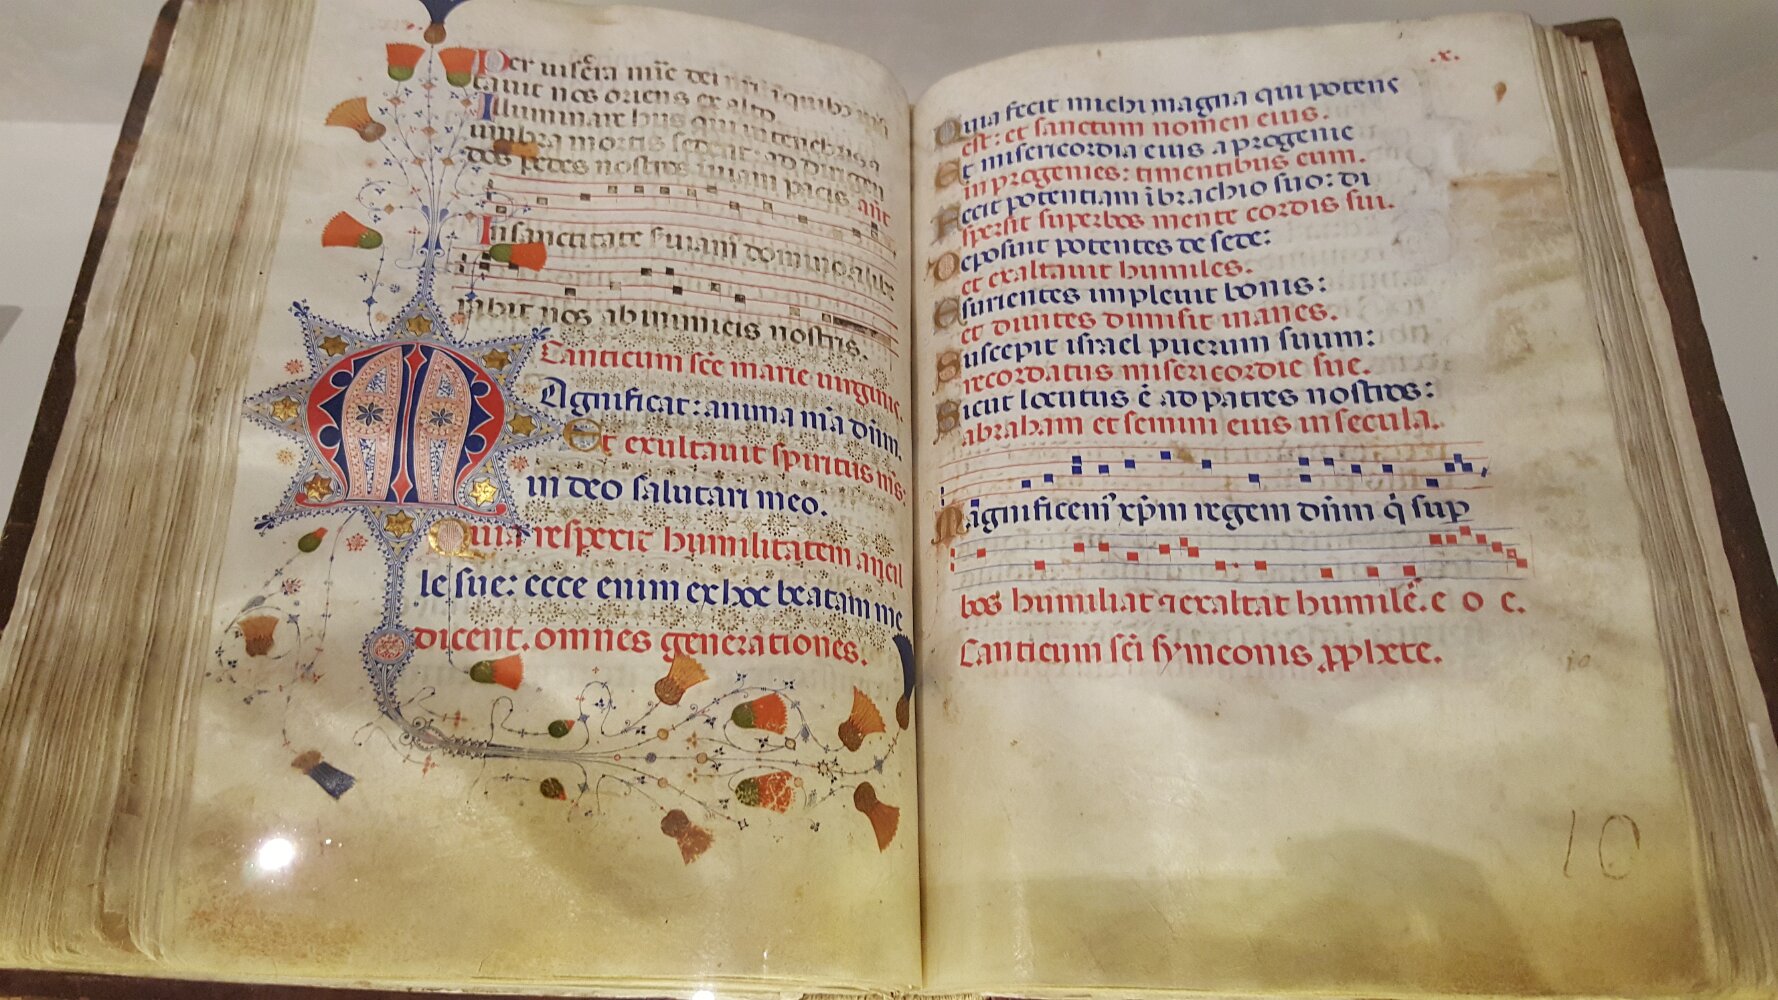 Per uiscera mie dei nri i quibz uisi
tauit nos oriens ex alto.
Illuminare hys qui in tenebris ⁊ i
umbra mortis sedent: ad dirigen
dos pedes nostros in uiam pacis añt
In sanctitate seruiam domino ⁊ libe
rabit nos ab inimicis nostris.
Canticum sce marie uirginis.
Magnificat: anima mea dñm.
Et exultauit spiritus ms:
in deo salutari meo.
Quia respexit humilitatem ancil
le sue: ecce enim ex hoc beatam me
dicent. omnes generationes.
.x.
Quia fecit michi magna qui potens
est: et sanctum nomen eius.
Et misericordia eius a progenie
in progenies: timentibus eum.
Fecit potentiam i brachio suo: di
spersit superbos mente cordis sui.
Deposuit potentes de sede:
et exaltauit humiles.
Esurientes impleuit bonis:
et diuites dimisit inanes.
Suscepit israel puerum suum:
recordatus misericordie sue.
Sicut locutus ē ad patres nostros:
abraham et semini eius in secula.
Magnificem' xp̄m regem dñm q̇ sup
bos humiliat ⁊ exaltat humilē. e o e.
Canticum sci symeonis pphete.
10
10